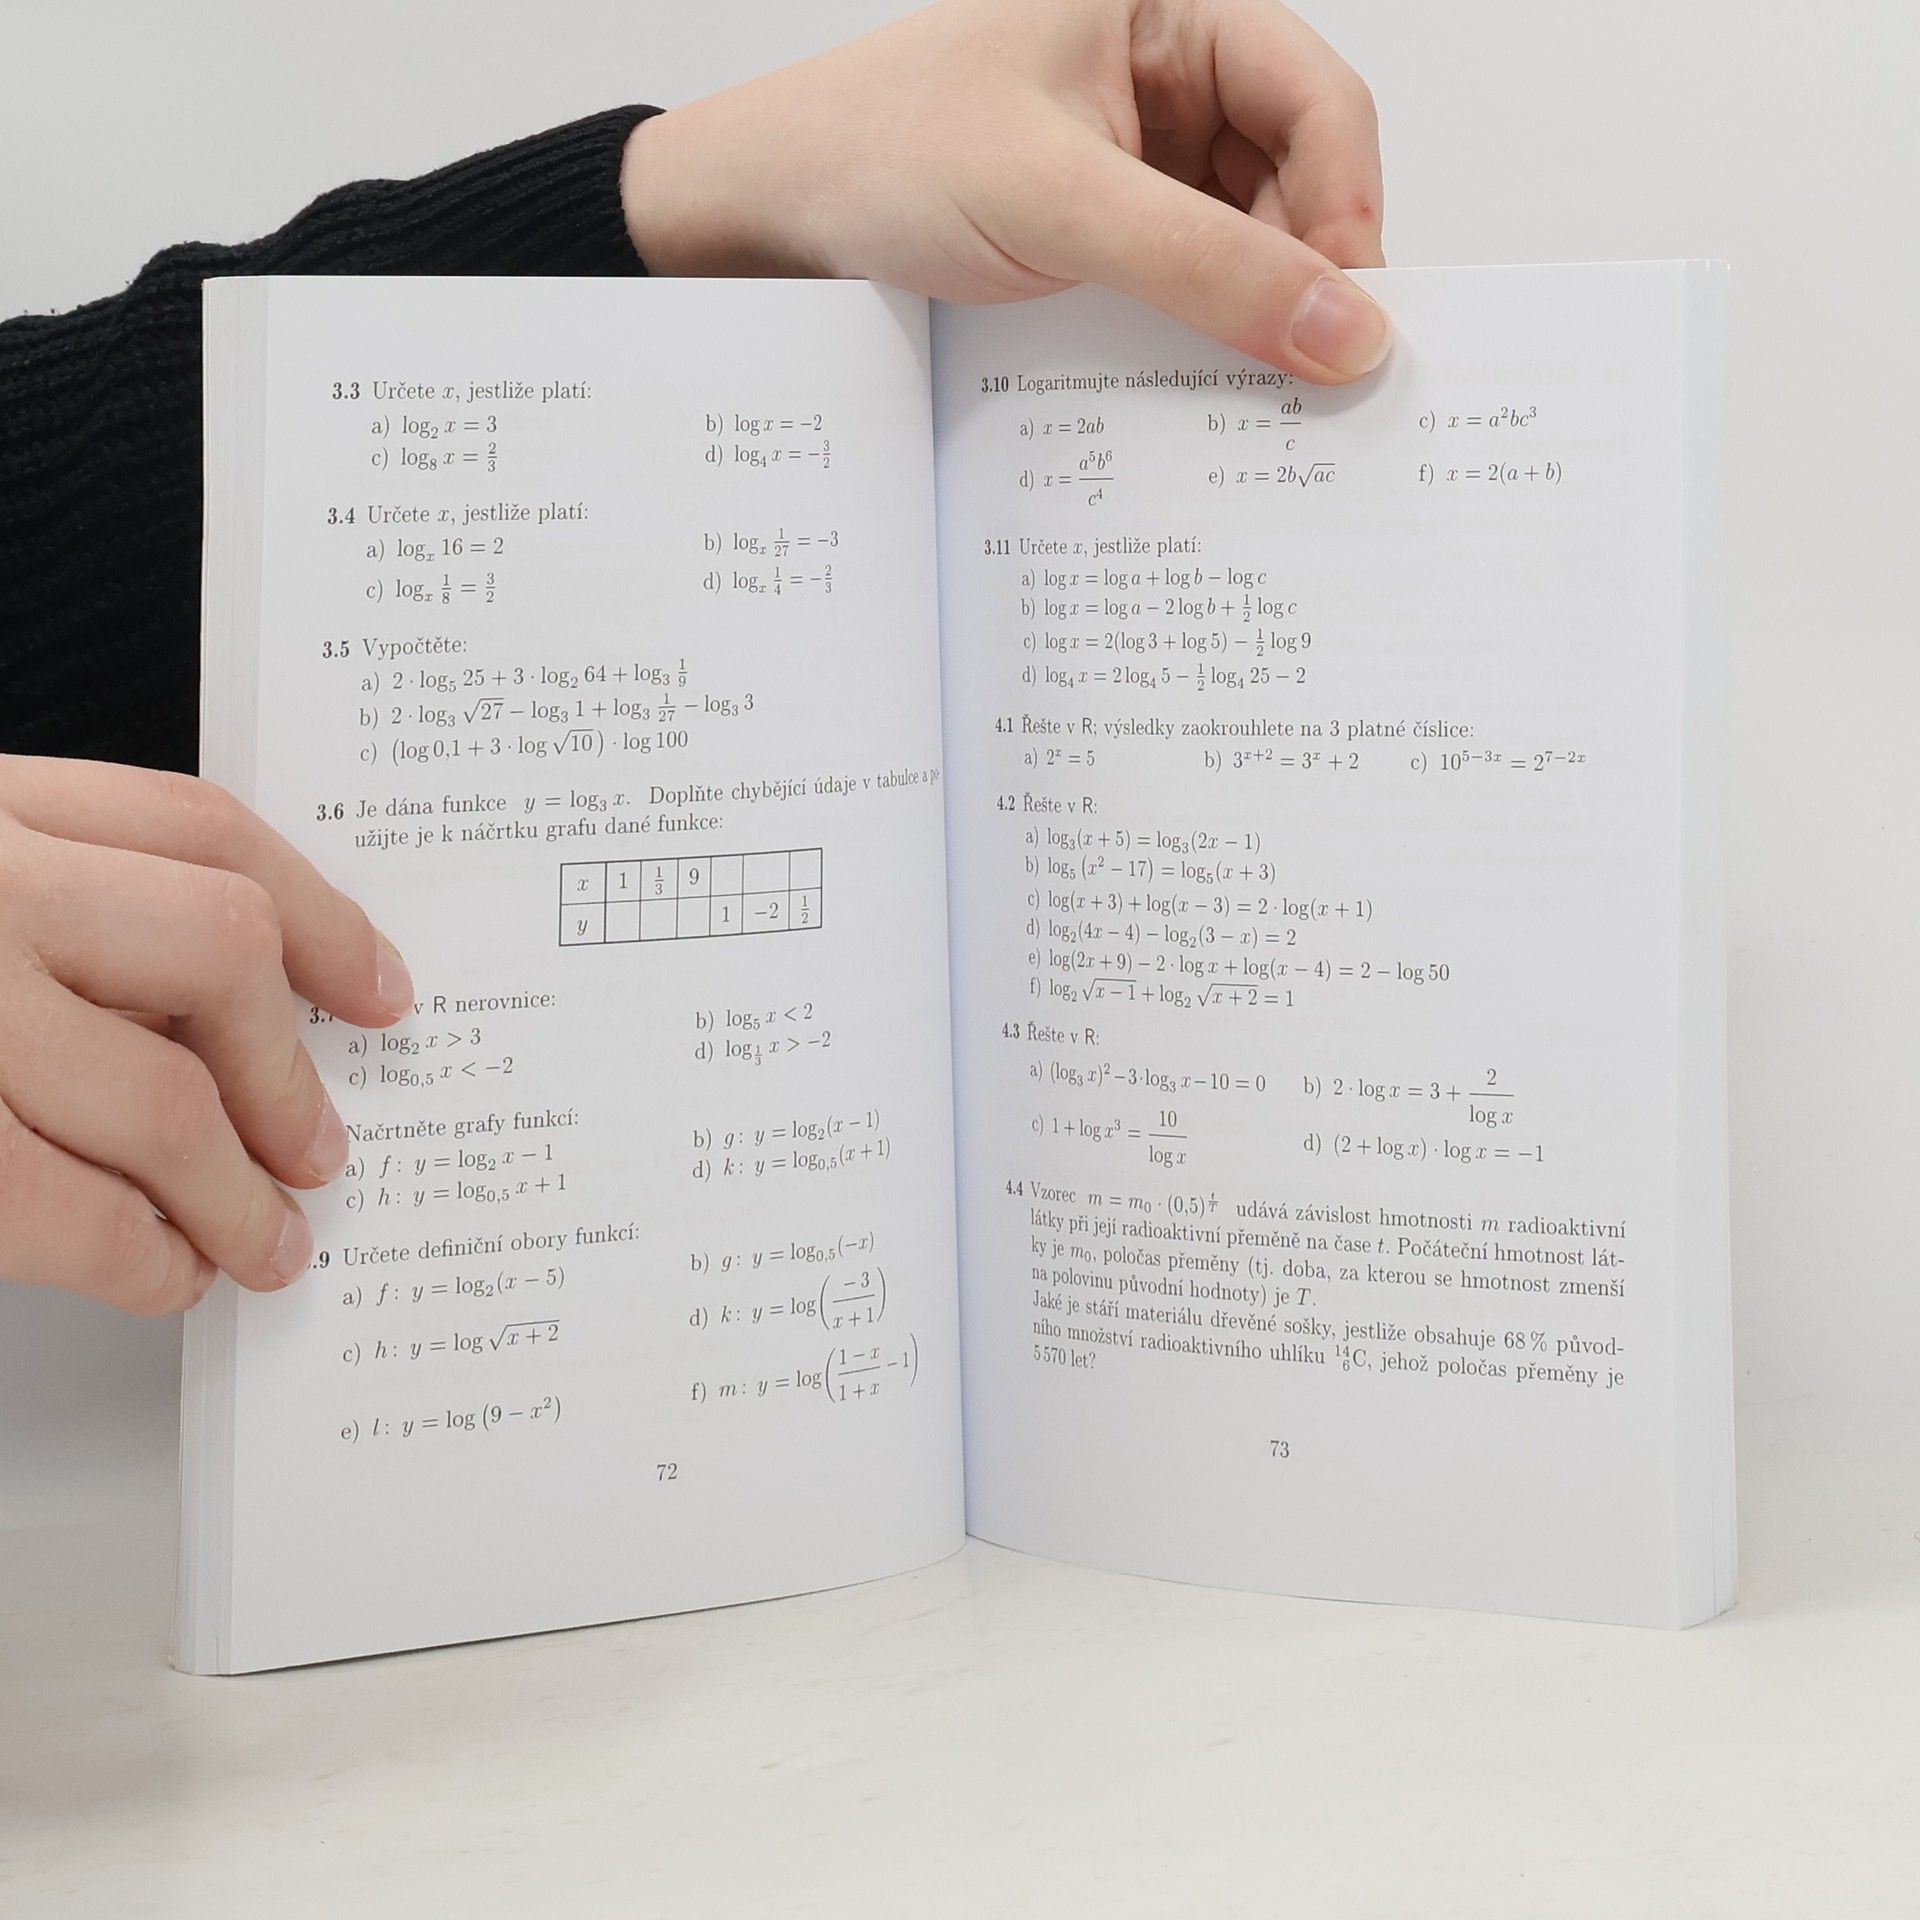 3.3 Určete x, jestliže platí:
a) log₂ x = 3 b) log x = −2
c) log₈ x = 2/3 d) log₄ x = −3/2
3.4 Určete x, jestliže platí:
a) logₓ 16 = 2 b) logₓ 1/27 = −3
c) logₓ 1/8 = 3/2 d) logₓ 1/4 = −2/3
3.5 Vypočtěte:
a) 2 · log₅ 25 + 3 · log₂ 64 + log₃ 1/9
b) 2 · log₃ √27 − log₃ 1 + log₃ 1/27 − log₃ 3
c) (log 0,1 + 3 · log √10) · log 100
3.6 Je dána funkce y = log₃ x. Doplňte chybějící údaje v tabulce a
užijte je k náčrtku grafu dané funkce:
x 1 1/3 9
y 1 −2 1/2
v R nerovnice:
a) log₂ x > 3 b) log₅ x < 2
c) log₀,₅ x < −2 d) log_{1/3} x > −2
Načrtněte grafy funkcí:
a) f: y = log₂ x − 1 b) g: y = log₂(x − 1)
c) h: y = log₀,₅ x + 1 d) k: y = log₀,₅(x + 1)
.9 Určete definiční obory funkcí:
a) f: y = log₂(x − 5) b) g: y = log₀,₅(−x)
c) h: y = log √(x + 2) d) k: y = log(−3/(x + 1))
e) l: y = log (9 − x²) f) m: y = log((1 − x)/(1 + x) − 1)
72
3.10 Logaritmujte následující výrazy:
a) x = 2ab b) x = ab/c c) x = a²bc³
d) x = a⁵b⁶/c⁴ e) x = 2b√(ac) f) x = 2(a + b)
3.11 Určete x, jestliže platí:
a) log x = log a + log b − log c
b) log x = log a − 2 log b + 1/2 log c
c) log x = 2(log 3 + log 5) − 1/2 log 9
d) log₄ x = 2 log₄ 5 − 1/2 log₄ 25 − 2
4.1 Řešte v R; výsledky zaokrouhlete na 3 platné číslice:
a) 2ˣ = 5 b) 3ˣ⁺² = 3ˣ + 2 c) 10⁵⁻³ˣ = 2⁷⁻²ˣ
4.2 Řešte v R:
a) log₃(x + 5) = log₃(2x − 1)
b) log₅ (x² − 17) = log₅(x + 3)
c) log(x + 3) + log(x − 3) = 2 · log(x + 1)
d) log₂(4x − 4) − log₂(3 − x) = 2
e) log(2x + 9) − 2 · log x + log(x − 4) = 2 − log 50
f) log₂ √(x − 1) + log₂ √(x + 2) = 1
4.3 Řešte v R:
a) (log₃ x)² − 3·log₃ x − 10 = 0 b) 2 · log x = 3 + 2/log x
c) 1 + log x³ = 10/log x d) (2 + log x) · log x = −1
4.4 Vzorec m = m₀ · (0,5)^{t/T} udává závislost hmotnosti m radioaktivní
látky při její radioaktivní přeměně na čase t. Počáteční hmotnost lát-
ky je m₀, poločas přeměny (tj. doba, za kterou se hmotnost zmenší
na polovinu původní hodnoty) je T.
Jaké je stáří materiálu dřevěné sošky, jestliže obsahuje 68 % původ-
ního množství radioaktivního uhlíku ¹⁴₆C, jehož poločas přeměny je
5 570 let?
73